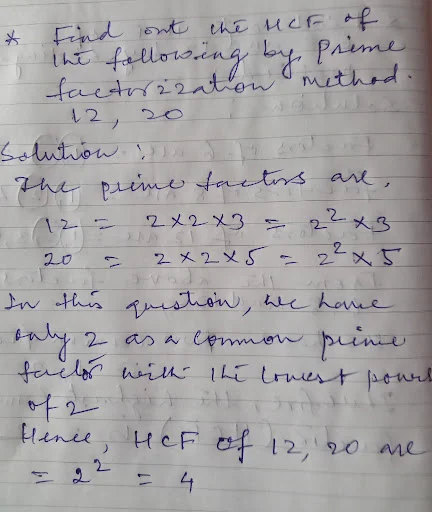 * Find out the HCF of
the following by Prime
factorization Method.
12, 20
Solution :
The prime factors are,
12 = 2×2×3 = 2² ×3
20 = 2×2×5 = 2² × 5
In this question, we have
only 2 as a common prime
factor with the lowest power
of 2
Hence, HCF of 12, 20 are
= 2² = 4